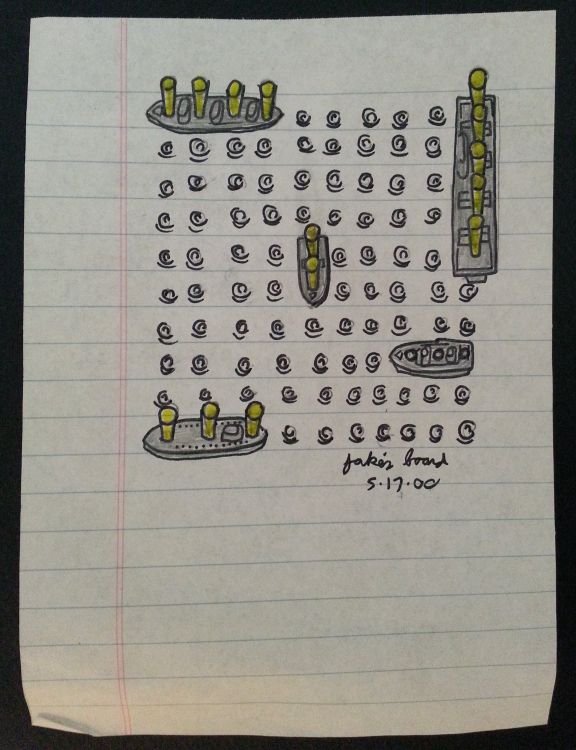 jake's board
5.17.00